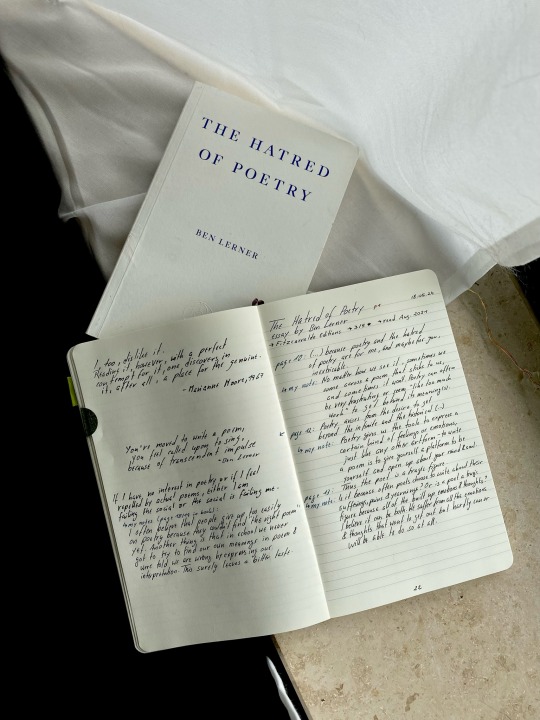 THE HATRED
OF POETRY
BEN LERNER
I, too, dislike it.
Reading it, however, with a perfect
contempt for it, one discovers in
it, after all, a place for the genuine.
- Marianne Moore, 1967
You're moved to write a poem,
you feel called upon to sing,
because of transcendent impulse
- Ben Lerner
If I have no interest in poetry or if I feel
repelled by actual poems, either I am
failing the social or the social is failing me.
I often believe that people give up too easily
on poetry because they haven't found "the right poem"
yet. Another thing is that in school we never
got to try to find our own meanings in poem &
were told we are wrong by expressing our
interpretation. This surely leaves a bitter taste.
The Hatred of Poetry
Essay by Ben Lerner
Fitzcarraldo Editions → read Aug. 2024
page 10: (...) because poetry and the hatred
of poetry are for me, and maybe for you,
inextricable.
my note: No matter how we see it, sometimes we
come across a poem that sticks to us,
and sometimes it won't. Poetry can often
be very frustrating or some "like too much
work" to get behind its meaning(s).
page 12: Poetry arises from the desire to get
beyond the finite and the historical (...)
my note: Poetry gives us the tools to express a
certain kind of feelings or emotions,
just like any other artform - to write
a poem is to give yourself a platform to be
yourself, and open up about your mind & soul.
Thus the poet is a tragic figure.
my note: Is it because often poets choose to write about their
sufferings, pains & yearnings? Or is a poet a tragic
figure because all of the pent up emotions & thoughts? I
believe it can be both. We suffer from all the emotions
& thoughts that want to get out but hardly can or
will be able to do so at all.
22